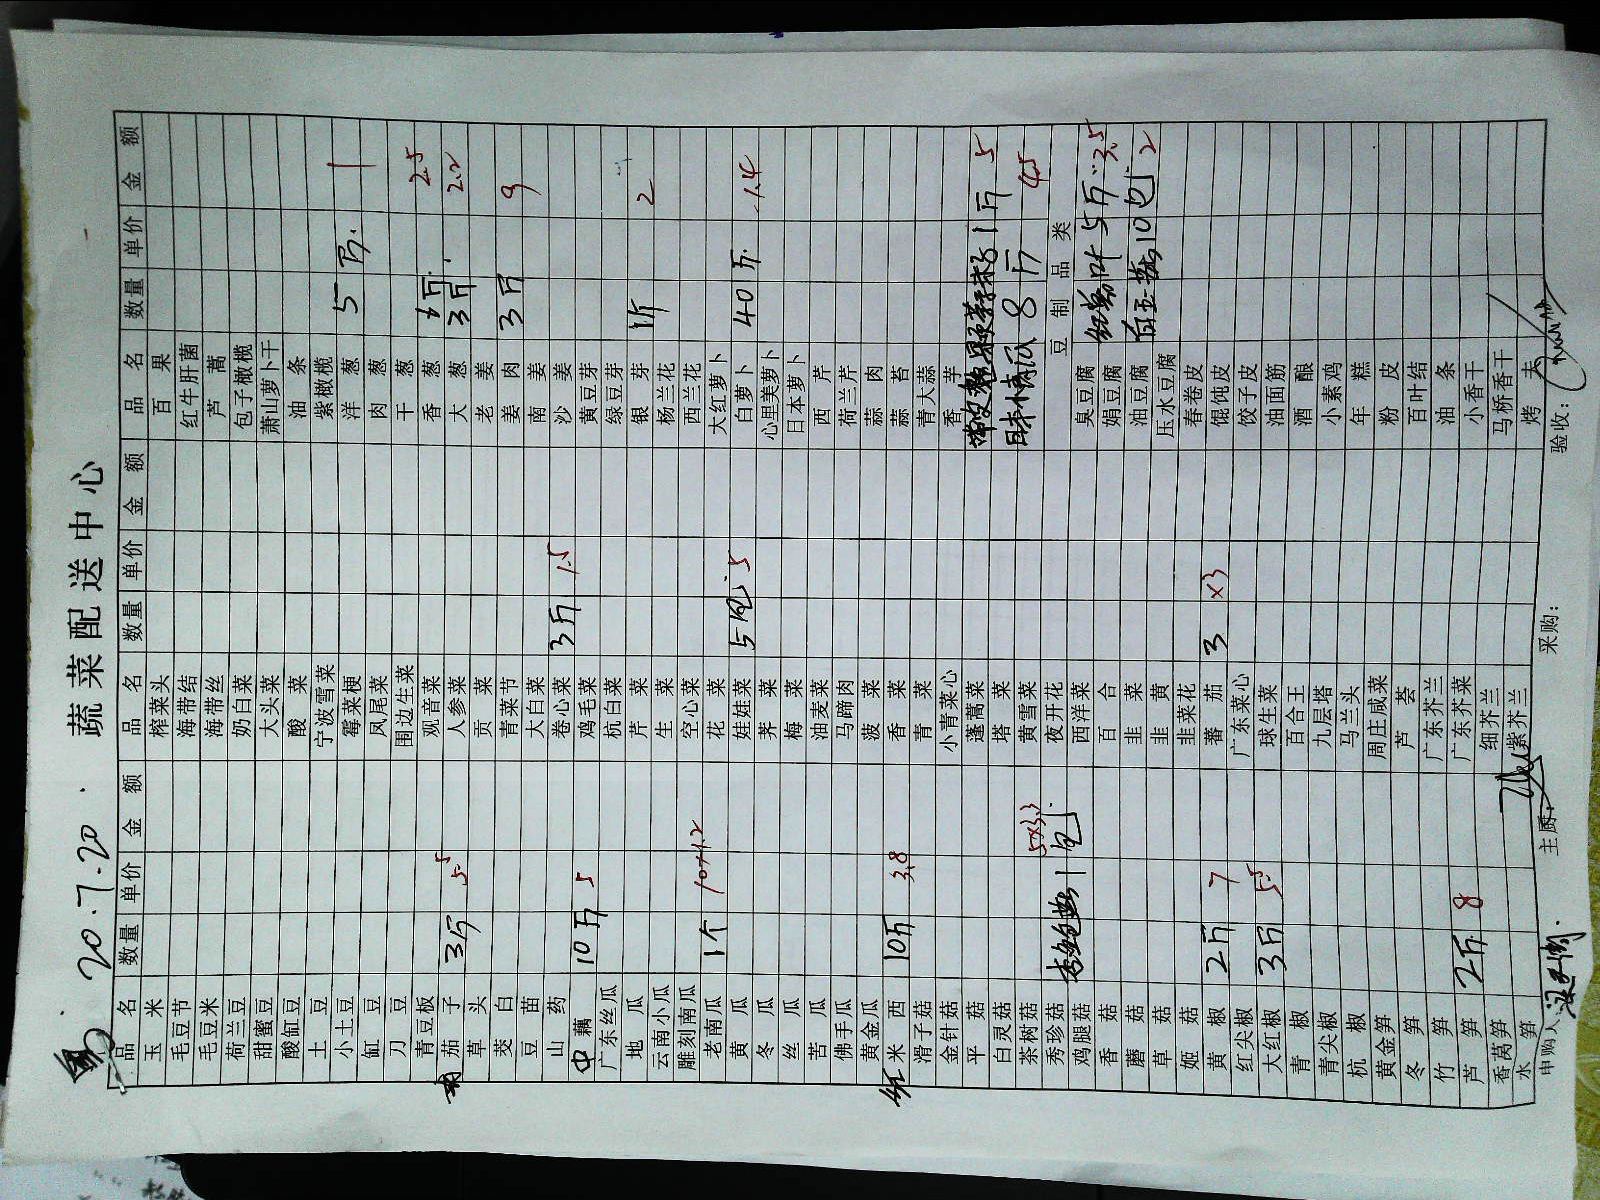 蔬菜配送中心
20.7.20
品名 数量 单价 金额 品名 数量 单价 金额 品名 数量 单价 金额
玉米 榨菜头 百果
毛豆节 海带结 红牛肝菌
毛豆米 海带丝 芦蒿
荷兰豆 奶白菜 包子橄榄
甜蜜豆 大头菜 萧山萝卜干
酸缸豆 酸菜 油条
土豆 宁波雪菜 紫橄榄
小土豆 霉菜梗 洋葱 5斤 1
缸豆 凤尾菜 肉葱
刀豆 围边生菜 干葱
青豆板 观音菜 香葱 斤 2.5
茄子 3斤 5.5 人参菜 大葱 3斤 2.2
草头 贡菜 老姜
茭白 青菜节 姜肉 3斤 9
豆苗 大白菜 南姜
山药 卷心菜 3斤 1.5 沙姜
中藕 10斤 5 鸡毛菜 黄豆芽
广东丝瓜 杭白菜 绿豆芽
地瓜 芹菜 银芽 1斤 2
云南小瓜 生菜 杨兰花
雕刻南瓜 空心菜 西兰花
老南瓜 1个 10×1.2 花菜 大红萝卜
黄瓜 娃娃菜 5包 5 白萝卜 40斤 1.4
冬瓜 荠菜 心里美萝卜
丝瓜 梅菜 日本萝卜
苦瓜 油麦菜 西芹
佛手瓜 马蹄肉 荷兰芹
黄金瓜 菠菜 蒜肉
红米西 10斤 3.8 香菜 蒜苔
滑子菇 青菜 青大蒜
金针菇 小青菜心 香芋
平菇 蓬蒿菜 1斤 5
白灵菇 塔菜
茶树菇 5×3.3 黄雪菜 日本南瓜 8斤 4.5
秀珍菇 1包 夜开花 豆制品类
鸡腿菇 西洋菜 臭豆腐 5斤 3.5
香菇 百合 绢豆腐
蘑菇 韭菜 油豆腐 10包 2
草菇 韭黄 压水豆腐
姬菇 韭菜花 春卷皮
黄椒 2斤 7 番茄 3 ×3 馄饨皮
红尖椒 广东菜心 饺子皮
大红椒 3斤 5.5 球生菜 油面筋
青椒 百合王 酒酿
青尖椒 九层塔 小素鸡
杭椒 马兰头 年糕
黄金笋 周庄咸菜 粉皮
冬笋 芦荟 百叶结
竹笋 广东芥兰 油条
芦笋 2斤 8 广东芥菜 小香干
香莴笋 细芥兰 马桥香干
水笋 紫芥兰 烤夫
申购人: 主厨: 采购: 验收: